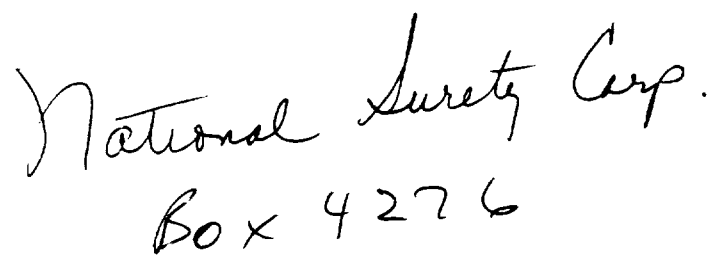 National Surety Corp.
Box 4276